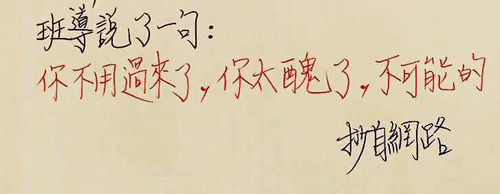 班導說了一句：
你不用過來了，你太醜了，不可能的
抄自網路